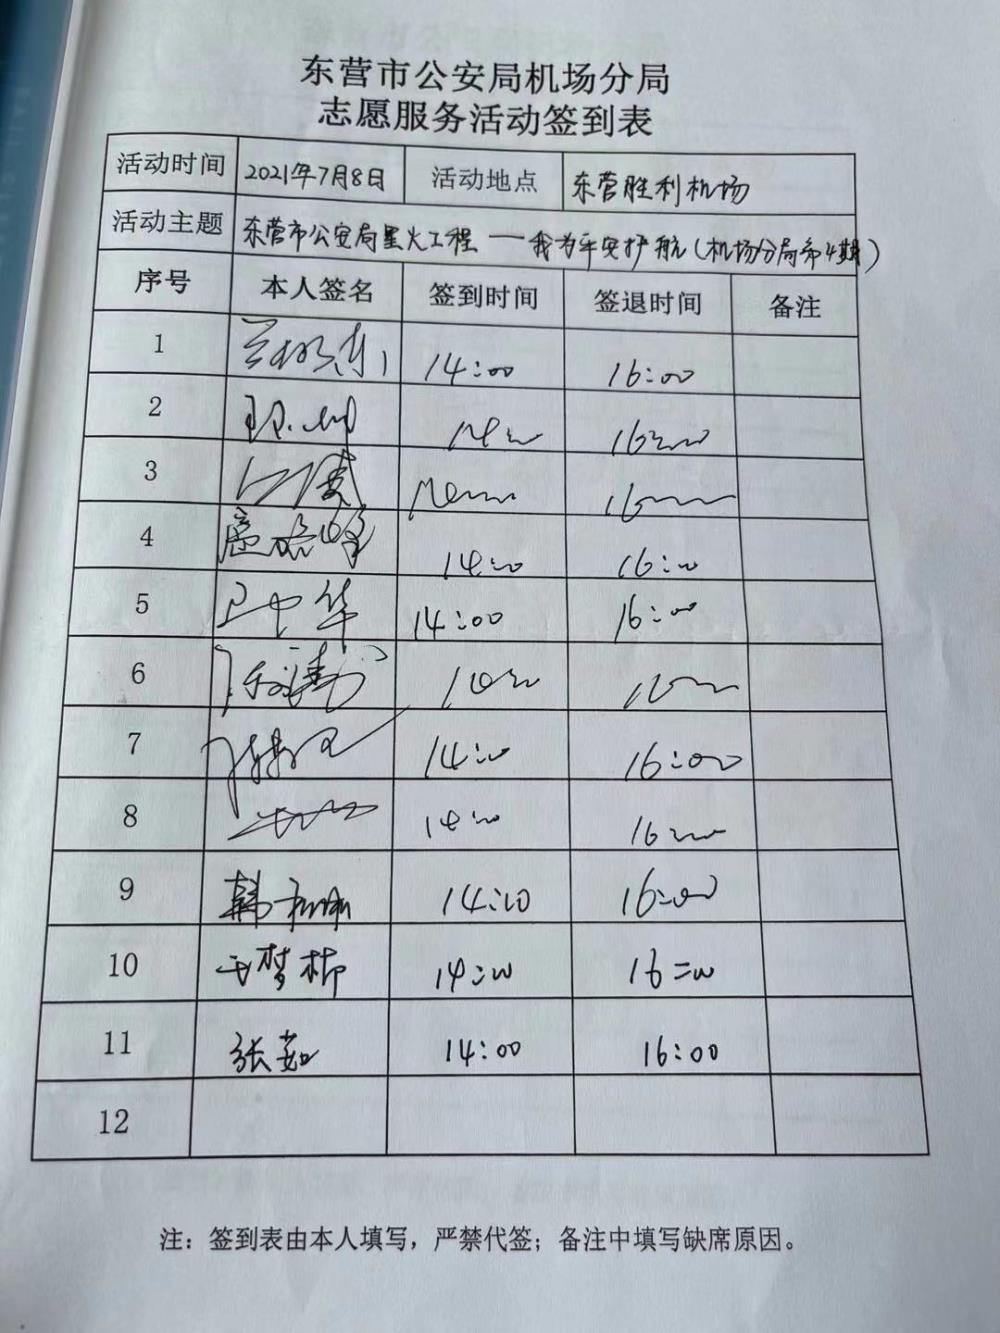 东营市公安局机场分局
志愿服务活动签到表
活动时间 2021年7月8日 活动地点 东营胜利机场
活动主题 东营市公安局星火工程 — 我为平安护航(机场分局第4期)
序号 本人签名 签到时间 签退时间 备注
1 14:00 16:00
2 14:00 16:00
3 16:00
4 14:00 16:00
5 14:00 16:00
6
7 14:00 16:00
8 14:00 16:00
9 韩 14:00 16:00
10 梦 14:00 16:00
11 张茹 14:00 16:00
12
注：签到表由本人填写，严禁代签；备注中填写缺席原因。